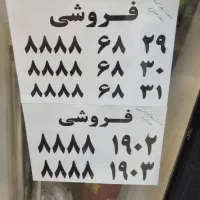 فروشی
۸۸۸۸ ۶۸ ۲۹
۸۸۸۸ ۶۸ ۳۰
۸۸۸۸ ۶۸ ۳۱
فروشی
۸۸۸۸ ۱۹۰۲
۸۸۸۸ ۱۹۰۳